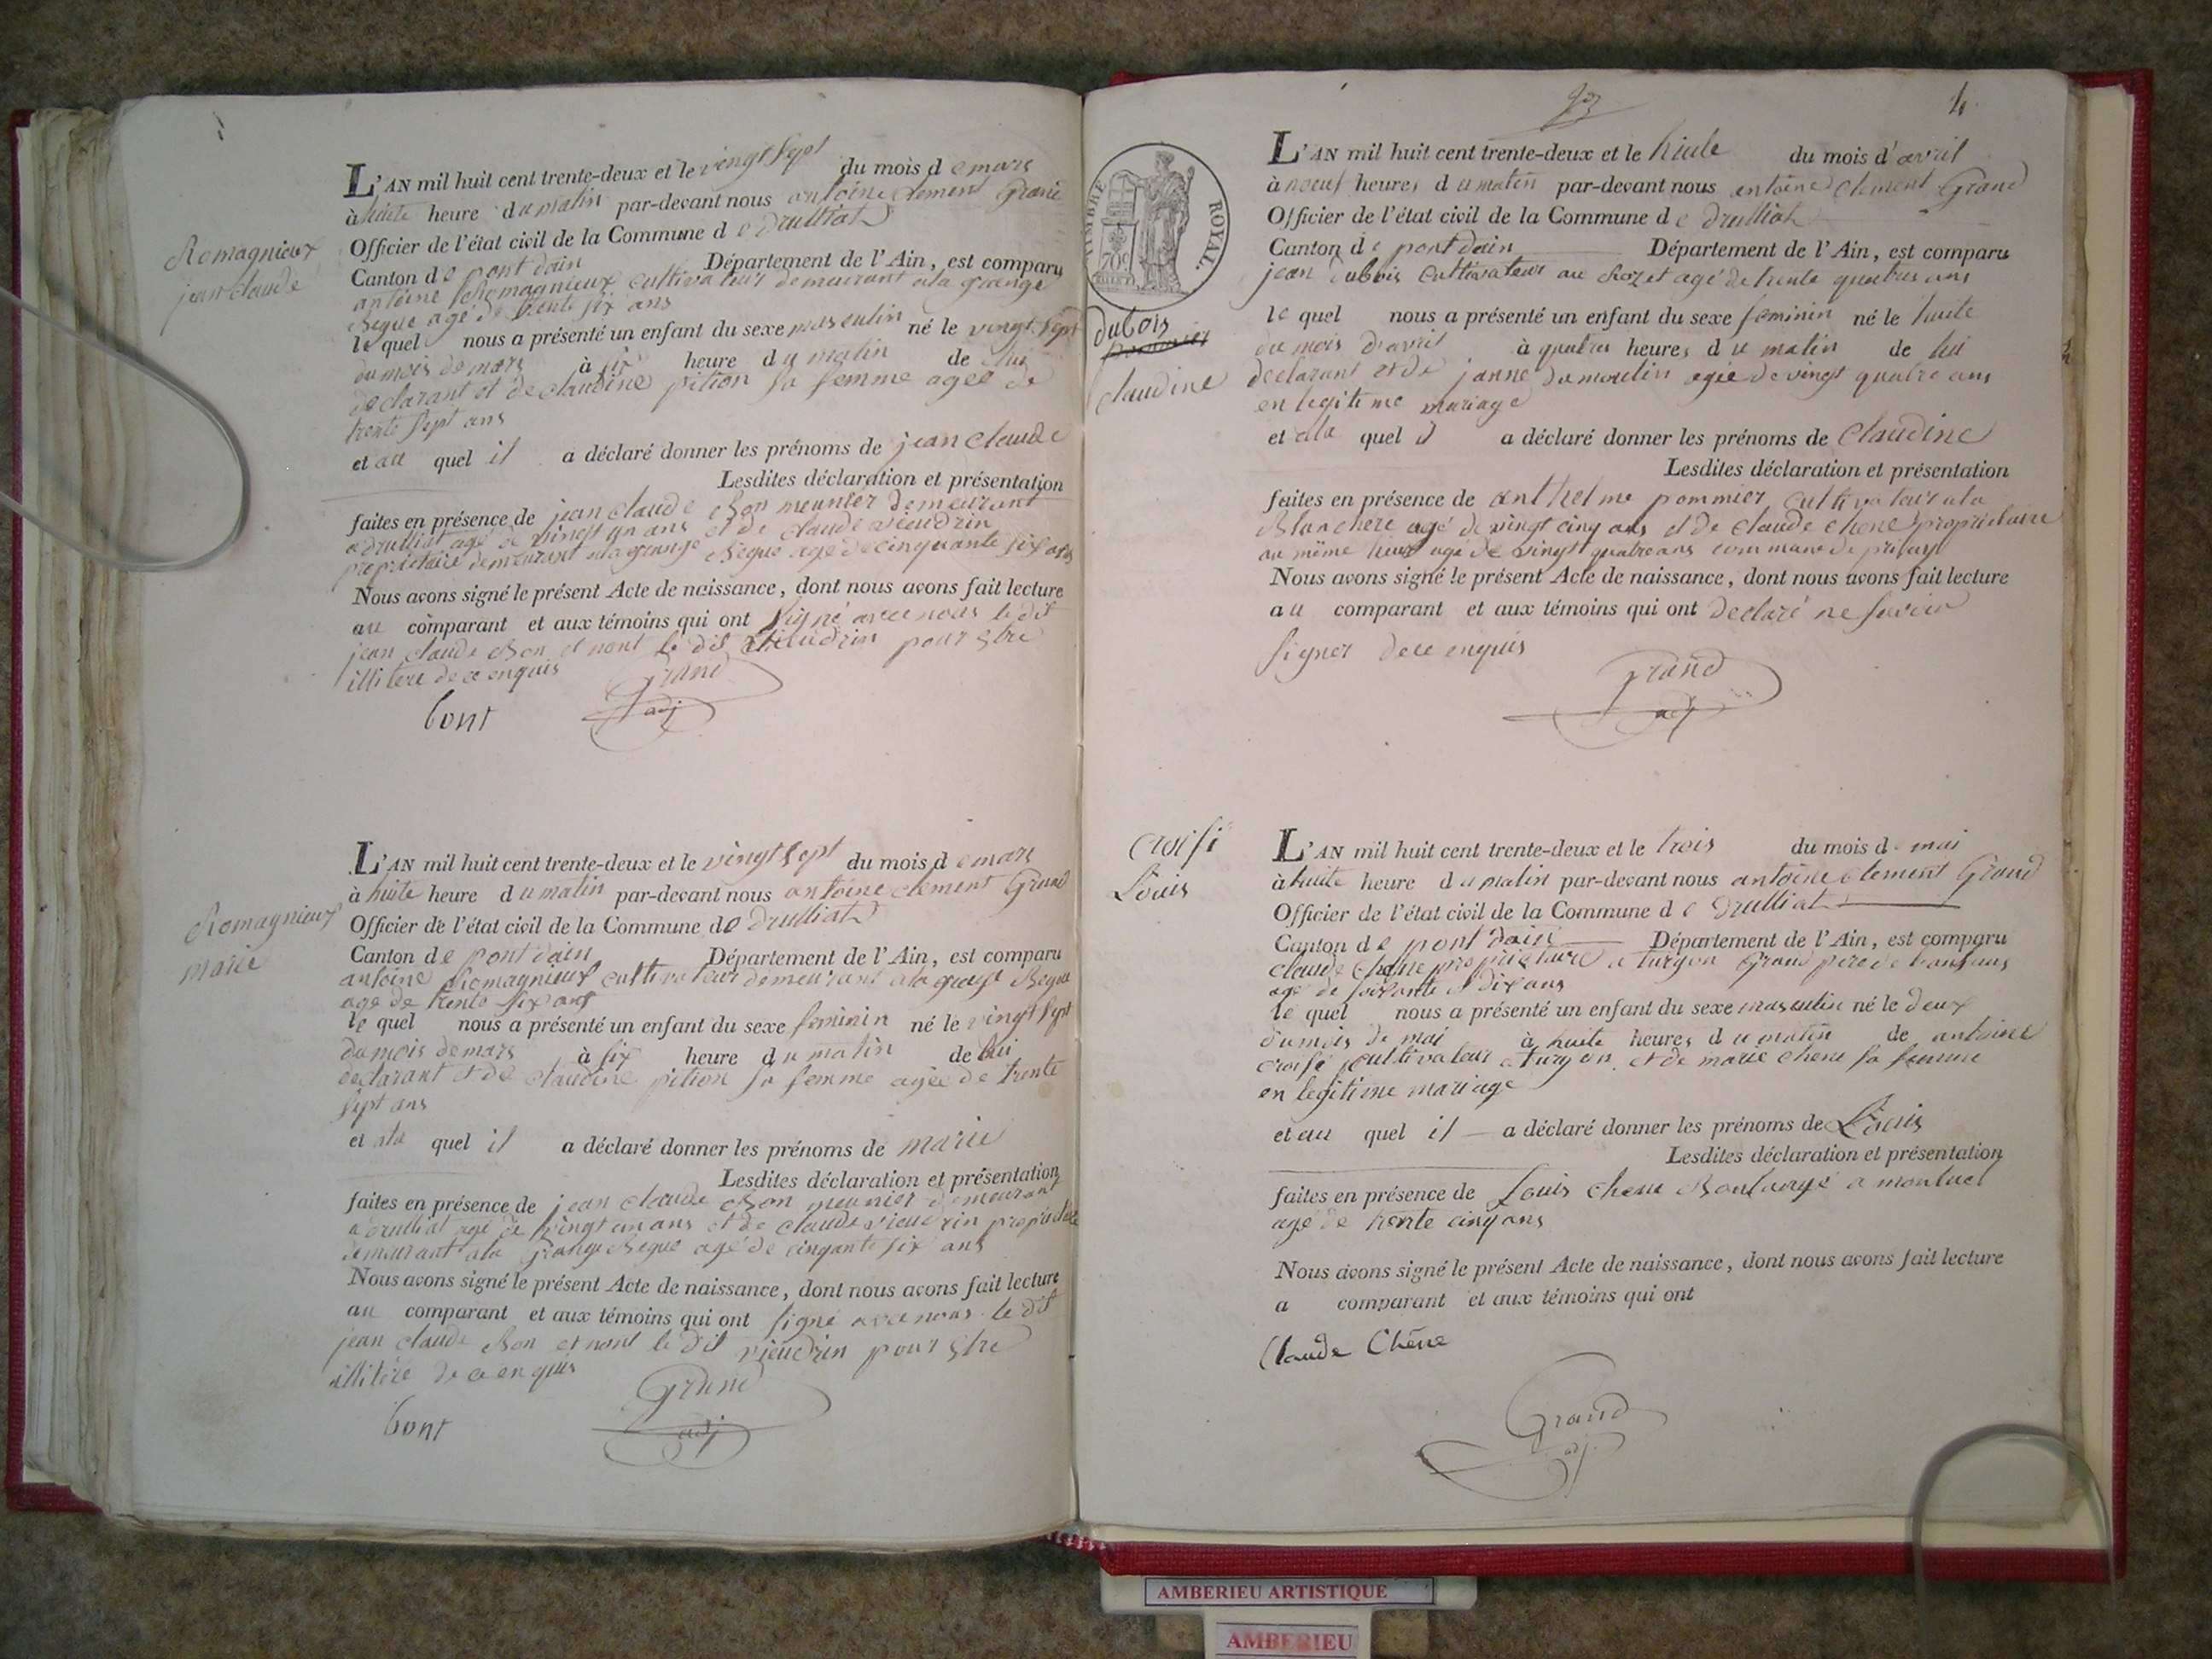 Romagnieux
jean claude
L'AN mil huit cent trente-deux et le vingt sept du mois d e mars
à huite heure du matin par-devant nous antoine clement Grand
Officier de l'état civil de la Commune d e Druilliat
Canton de pont dain Département de l'Ain, est comparu
antoine Romagnieux cultivateur demeurant a la grange
Begue agé de trente six ans
le quel nous a présenté un enfant du sexe masculin né le vingt sept
du mois de mars à six heure du matin de lui
declarant et de claudine pition sa femme agee de
trente sept ans
et au quel il a déclaré donner les prénoms de jean claude
Lesdites déclaration et présentation
faites en présence de jean claude Bon meunier demeurant
a druilliat agé de vingt un ans et de claude vieudrin
propriétaire demeurant a la grange Begue agé de cinquante six ans
Nous avons signé le présent Acte de naissance, dont nous avons fait lecture
au comparant et aux témoins qui ont signé avec nous le dit
jean claude Bon et nont le dit vieudrin pour stre
illitere de ce enquis
Grand
bont adj
Romagnieux
marie
L'AN mil huit cent trente-deux et le vingt sept du mois d e mars
à huite heure du matin par-devant nous antoine clement Grand
Officier de l'état civil de la Commune de Druilliat
Canton de pont dain Département de l'Ain, est comparu
antoine Romagnieux cultivateur demeurant a la grange Begue
agé de trente six ans
le quel nous a présenté un enfant du sexe feminin né le vingt sept
du mois de mars à six heure du matin de lui
declarant et de claudine pition sa femme agée de trente
sept ans
et ala quel il a déclaré donner les prénoms de marie
Lesdites déclaration et présentation
faites en présence de jean claude Bon meunier demeurant
a druilliat agé de vingt un ans et de claude vieudrin propriétere
demeurant a la grange Begue agé de cinqante six ans
Nous avons signé le présent Acte de naissance, dont nous avons fait lecture
au comparant et aux témoins qui ont signé avec nous le dit
jean claude Bon et nont le dit vieudrin pour stre
illitére de ce enquis
Grand
bont adj
4
TIMBRE ROYAL.
dubois
claudine
L'AN mil huit cent trente-deux et le huite du mois d'avril
à neuf heures du matin par-devant nous antoine clement Grand
Officier de l'état civil de la Commune d e druilliat
Canton de pont dain Département de l'Ain, est comparu
jean dubois cultivateur au chozet agé de trente quatres ans
le quel nous a présenté un enfant du sexe feminin né le huite
du mois d'avril à quatres heures du matin de lui
declarant et de janne dumoulin agée de vingt quatre ans
en legitime mariage
et ala quel il a déclaré donner les prénoms de Claudine
Lesdites déclaration et présentation
faites en présence de anthelme pommier cultivateur a la
Blanchere agé de vingt cinq ans et de claude chene propriétaire
au même lieux agé de vingt quatre ans commune de
Nous avons signé le présent Acte de naissance, dont nous avons fait lecture
au comparant et aux témoins qui ont declaré ne savoir
signer de ce enquis
Grand
adj
croisé
Louis
L'AN mil huit cent trente-deux et le trois du mois de mai
à huite heure du matin par-devant nous antoine clement Grand
Officier de l'état civil de la Commune d e Druilliat
Canton de pont dain Département de l'Ain, est comparu
claude chene propriétaire a turgon Grand pere de
agé de soixante et dix ans
le quel nous a présenté un enfant du sexe masculin né le deux
du mois de mai à huite heures du matin de antoine
croisé cultivateur a turgon et de marie chene sa femme
en legitime mariage
et au quel il a déclaré donner les prénoms de Louis
Lesdites déclaration et présentation
faites en présence de Louis chene a montuel
agé de trente cinq ans
Nous avons signé le présent Acte de naissance, dont nous avons fait lecture
a comparant et aux témoins qui ont
Claude Chêne
Grand
adj
AMBERIEU ARTISTIQUE
AMBERIEU